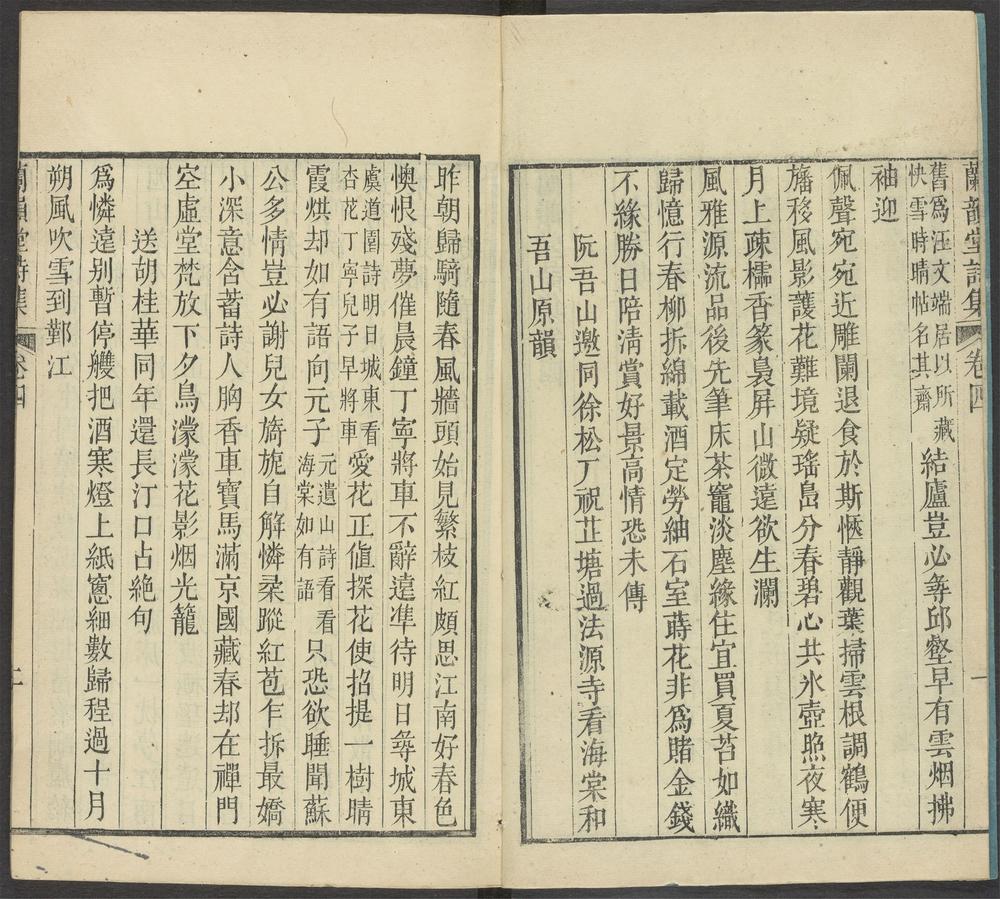 蘭韻堂詩集 卷四 一
舊爲汪文端居以所藏
快雪時晴帖名其齋
結廬豈必尋邱壑早有雲烟拂
袖迎
佩聲宛宛近雕闌退食於斯愜靜觀葉掃雲根調鶴便
旛移風影護花難境疑瑤島分春碧心共氷壺照夜寒
月上疎櫺香篆裊屏山微遠欲生瀾
風雅源流品後先筆床茶竈淡塵緣住宜買夏苔如織
歸憶行春柳拆綿載酒定勞紬石室蒔花非爲賭金錢
不緣勝日陪淸賞好景高情恐未傳
阮吾山邀同徐松厂祝芷塘過法源寺看海棠和
吾山原韻
昨朝歸騎隨春風牆頭始見繁枝紅頗思江南好春色
懊恨殘夢催晨鐘丁寧將車不辭遠準待明日尋城東
虞道園詩明日城東看
杏花丁寧兒子早將車
愛花正値探花使招提一樹晴
霞烘却如有語向元子
元遺山詩看看
海棠如有語
只恐欲睡聞蘇
公多情豈必謝兒女旖旎自解憐柔蹤紅苞乍拆最嬌
小深意含蓄詩人胸香車寶馬滿京國藏春却在禪門
空虛堂梵放下夕鳥濛濛花影烟光籠
送胡桂華同年還長汀口占絶句
爲憐遠别暫停艭把酒寒燈上紙窻細數歸程過十月
朔風吹雪到鄞江
蘭韻堂詩集 卷四